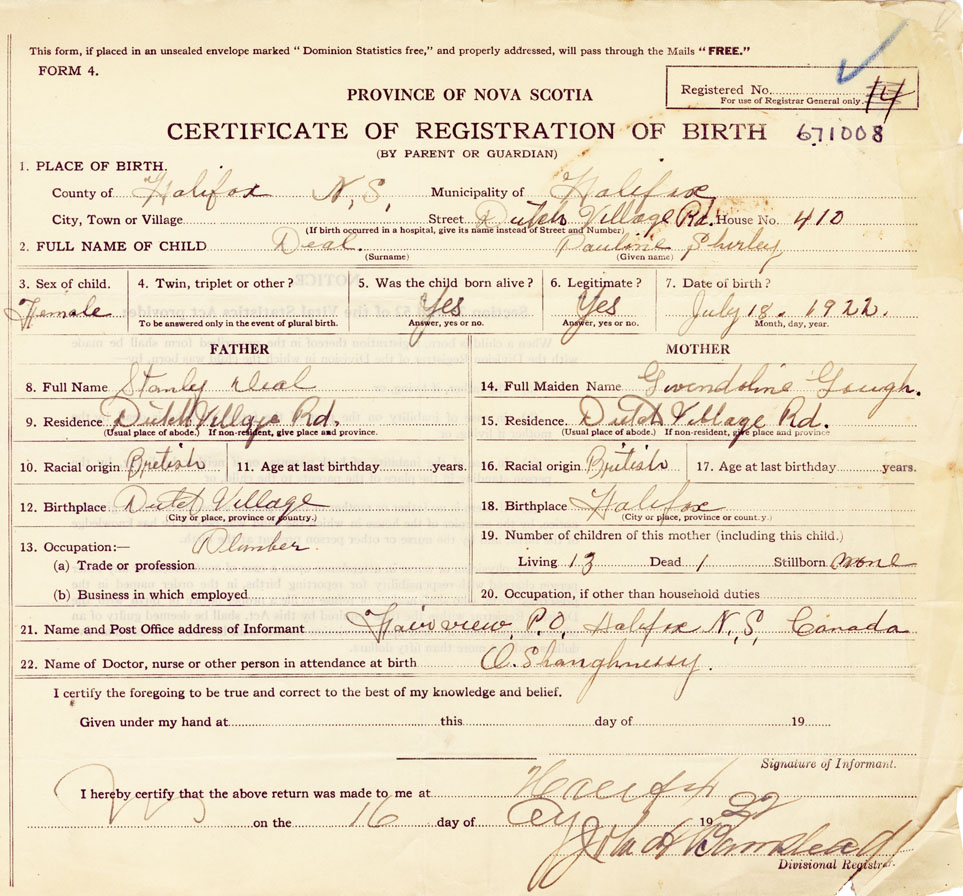 This form, if placed in an unsealed envelope marked "Dominion Statistics free," and properly addressed, will pass through the Mails "FREE."
FORM 4.
Registered No. 14
For use of Registrar General only.
PROVINCE OF NOVA SCOTIA
CERTIFICATE OF REGISTRATION OF BIRTH 671008
(BY PARENT OR GUARDIAN)
1. PLACE OF BIRTH.
County of Halifax N.S. Municipality of Halifax
City, Town or Village Street Dutch Village Rd. House No. 410
(If birth occurred in a hospital, give its name instead of Street and Number)
2. FULL NAME OF CHILD Deal. Pauline Shirley
(Surname) (Given name)
3. Sex of child. 4. Twin, triplet or other? 5. Was the child born alive? 6. Legitimate? 7. Date of birth?
Female Yes Yes July 18. 1922.
To be answered only in the event of plural birth. Answer, yes or no. Answer, yes or no. Month, day, year.
FATHER MOTHER
8. Full Name Stanly Deal 14. Full Maiden Name Gwendoline Gough.
9. Residence Dutch Village Rd. 15. Residence. Dutch Village Rd.
(Usual place of abode.) If non-resident, give place and province. (Usual place of abode.) If non-resident, give place and province
10. Racial origin British 11. Age at last birthday years. 16. Racial origin British 17. Age at last birthday years.
12. Birthplace Dutch Village 18. Birthplace Halifax
(City or place, province or country.) (City or place, province or country.)
13. Occupation:— Plumber. 19. Number of children of this mother (including this child.)
(a) Trade or profession Living 13 Dead 1 Stillborn none
(b) Business in which employed 20. Occupation, if other than household duties
21. Name and Post Office address of Informant Fairview, P.O, Halifax N.S, Canada
22. Name of Doctor, nurse or other person in attendance at birth O. Shanghnessy.
I certify the foregoing to be true and correct to the best of my knowledge and belief.
Given under my hand at this day of 19
Signature of Informant.
I hereby certify that the above return was made to me at Halifax
on the 16 day of 19 22
Divisional Registrar